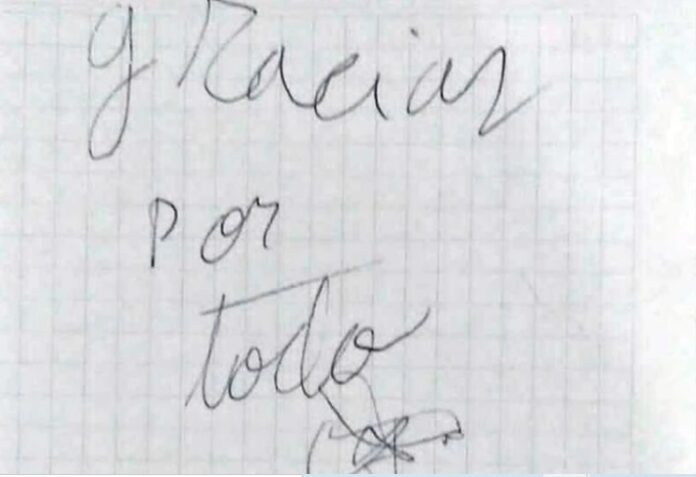 gracias
por
todo